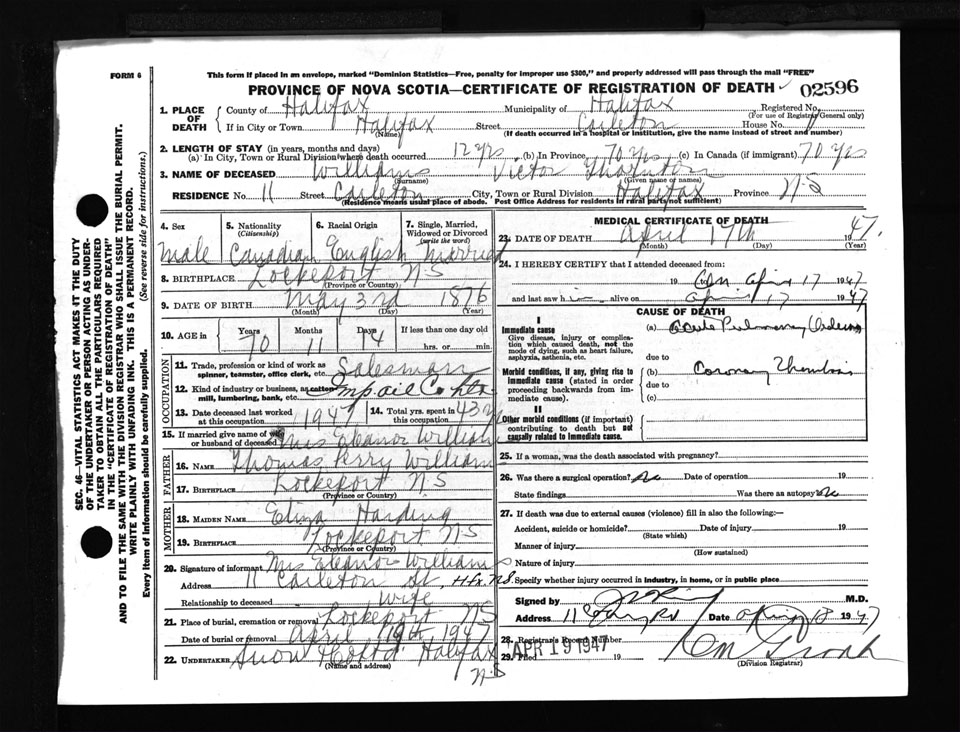 FORM 6
This form if placed in an envelope, marked "Dominion Statistics—Free, penalty for improper use $300," and properly addressed will pass through the mail "FREE"
PROVINCE OF NOVA SCOTIA—CERTIFICATE OF REGISTRATION OF DEATH 02596
1. PLACE OF DEATH
County of Halifax Municipality of Halifax Registered No.
(For use of Registrar General only)
If in City or Town Halifax Street Carleton House No.
(Name) (If death occurred in a hospital or institution, give the name instead of street and number)
2. LENGTH OF STAY (in years, months and days)
(a) In City, Town or Rural Division where death occurred 12 yrs. (b) In Province 70 yrs (c) In Canada (if immigrant) 70 yrs
3. NAME OF DECEASED Williams Victor Thornton
(Surname) (Given name or names)
RESIDENCE No. 11 Street Carleton City, Town or Rural Division Halifax Province N-S
(Residence means usual place of abode. Post Office Address for residents in rural parts not sufficient)
4. Sex
male
5. Nationality
(Citizenship)
Canadian
6. Racial Origin
English
7. Single, Married, Widowed or Divorced
(write the word)
married
8. BIRTHPLACE Lockeport N-S
(Province or Country)
9. DATE OF BIRTH May 3rd 1876
(Month) (Day) (Year)
10. AGE in
Years Months Days If less than one day old
70 11 14 hrs. or min.
OCCUPATION
11. Trade, profession or kind of work as
spinner, teamster, office clerk, etc. Salesman
12. Kind of industry or business, as cotton
mill, lumbering, bank, etc. Imp oil Co
13. Date deceased last worked
at this occupation 1947
14. Total yrs. spent in
this occupation 43 yrs
15. If married give name of wife
or husband of deceased Mrs Eleanor Williams
FATHER
16. NAME Thomas Perry Williams
17. BIRTHPLACE Lockeport N-S
(Province or Country)
MOTHER
18. MAIDEN NAME Eliza Harding
19. BIRTHPLACE Lockeport N-S
(Province or Country)
20. Signature of informant Mrs Eleanor Williams
Address 11 Carleton St, Hfx. N.S.
Relationship to deceased Wife
21. Place of burial, cremation or removal Lockeport N-S
Date of burial or removal April 19th, 1947
22. UNDERTAKER Snow & Co Ltd. Halifax
(Name and address)
N-S
MEDICAL CERTIFICATE OF DEATH
23. DATE OF DEATH April 17th 1947.
(Month) (Day) (Year)
24. I HEREBY CERTIFY that I attended deceased from:
19 April 17 1947
and last saw him alive on April 17 1947
CAUSE OF DEATH
I
Immediate cause
Give disease, injury or complication which caused death, not the mode of dying, such as heart failure, asphyxia, asthenia, etc.
(a) Acute Pulmonary Oedema
due to
Morbid conditions, if any, giving rise to immediate cause (stated in order proceeding backwards from immediate cause).
(b) Coronary Thrombosis
due to
(c)
II
Other morbid conditions (if important) contributing to death but not causally related to immediate cause.
25. If a woman, was the death associated with pregnancy?
26. Was there a surgical operation? No Date of operation 19
State findings Was there an autopsy? No
27. If death was due to external causes (violence) fill in also the following:—
Accident, suicide or homicide? Date of injury 19
(State which)
Manner of injury
(How sustained)
Nature of injury
Specify whether injury occurred in industry, in home, or in public place
Signed by M.D.
Address Date April 18 1947
28. Registrar's Record Number
29. Filed APR 19 1947 19
(Division Registrar)
SEC. 46—VITAL STATISTICS ACT MAKES IT THE DUTY
OF THE UNDERTAKER OR PERSON ACTING AS UNDER-
TAKER TO OBTAIN ALL THE PARTICULARS REQUIRED
IN THE "CERTIFICATE OF REGISTRATION OF DEATH"
AND TO FILE THE SAME WITH THE DIVISION REGISTRAR WHO SHALL ISSUE THE BURIAL PERMIT.
WRITE PLAINLY WITH UNFADING INK. THIS IS A PERMANENT RECORD.
Every item of information should be carefully supplied. (See reverse side for instructions.)